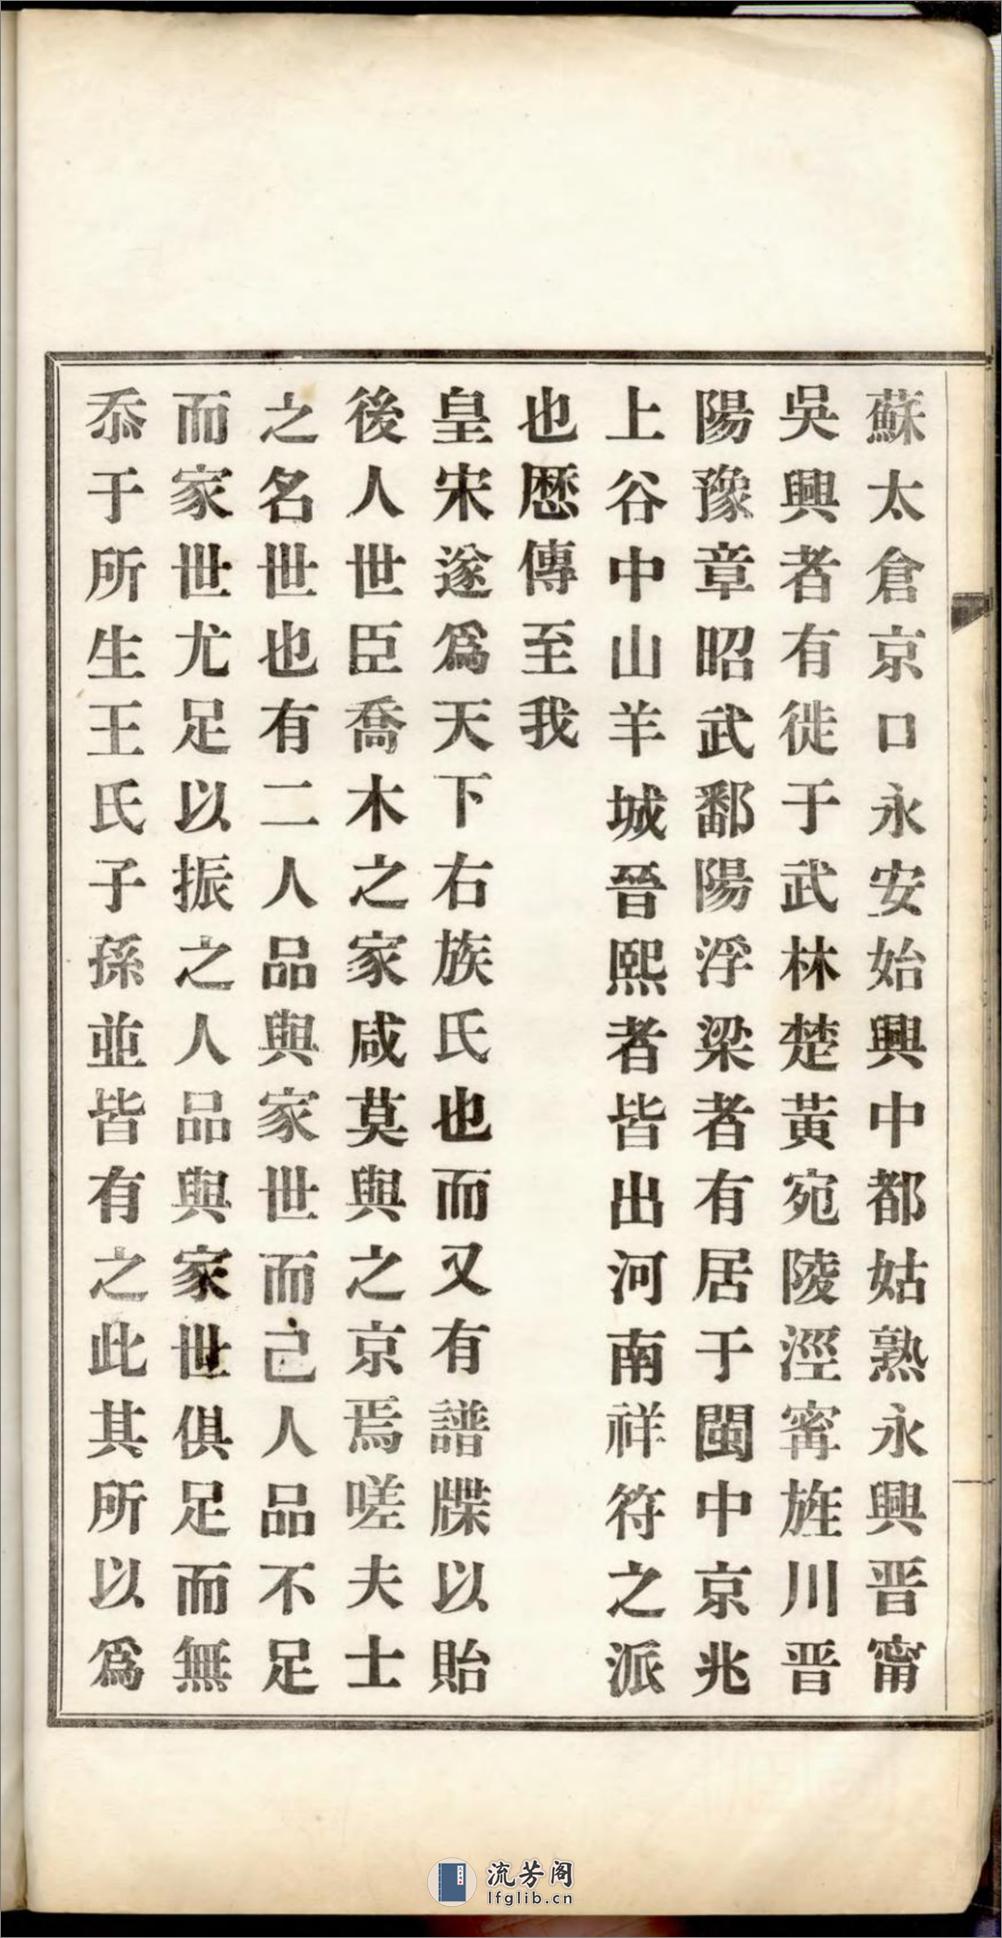 蘇太倉京口永安始興中都姑熟永興晋甯
吳興者有徙于武林楚黃宛陵涇甯旌川晋
陽豫章昭武鄱陽浮梁者有居于閩中京兆
上谷中山羊城晉熙者皆出河南祥符之派
也歴傳至我
皇宋遂爲天下右族氏也而又有譜牒以貽
後人世臣喬木之家咸莫與之京焉嗟夫士
之名世也有二人品與家世而己人品不足
而家世尤足以振之人品與家世俱足而無
忝于所生王氏子孫並皆有之此其所以爲
流芳阁
lfglib.cn